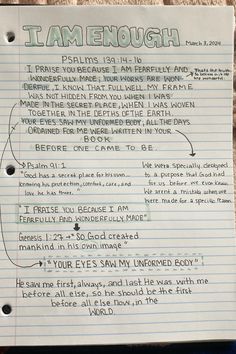 I AM ENOUGH
March 3, 2024
PSALMS 139:14-16
I PRAISE YOU BECAUSE I AM FEARFULLY AND
WONDERFULLY MADE; YOUR WORKS ARE WON-
DERFUL, I KNOW THAT FULL WELL. MY FRAME
WAS NOT HIDDEN FROM YOU WHEN I WAS
MADE IN THE SECRET PLACE, WHEN I WAS WOVEN
TOGETHER IN THE DEPTHS OF THE EARTH.
YOUR EYES SAW MY UNFORMED BODY; ALL THE DAYS
ORDAINED FOR ME WERE WRITTEN IN YOUR
BOOK
BEFORE ONE CAME TO BE.
Psalm 91:1
"God has a secret place for his own
knowing his protection, comfort, care, and
love he has there."
We were specially designed
to a purpose that God had
for us before we even knew.
We aren't a mistake
were
here made for a special reason.
"I PRAISE YOU BECAUSE I AM
FEARFULLY AND WONDERFULLY MADE"
Genesis 1:27 → "So God created
mankind in his own image"
"YOUR EYES SAW MY UNFORMED BODY"
He saw me first, always, and last. He was with me
before all else, so he should be the first
before all else now, in the
WORLD.